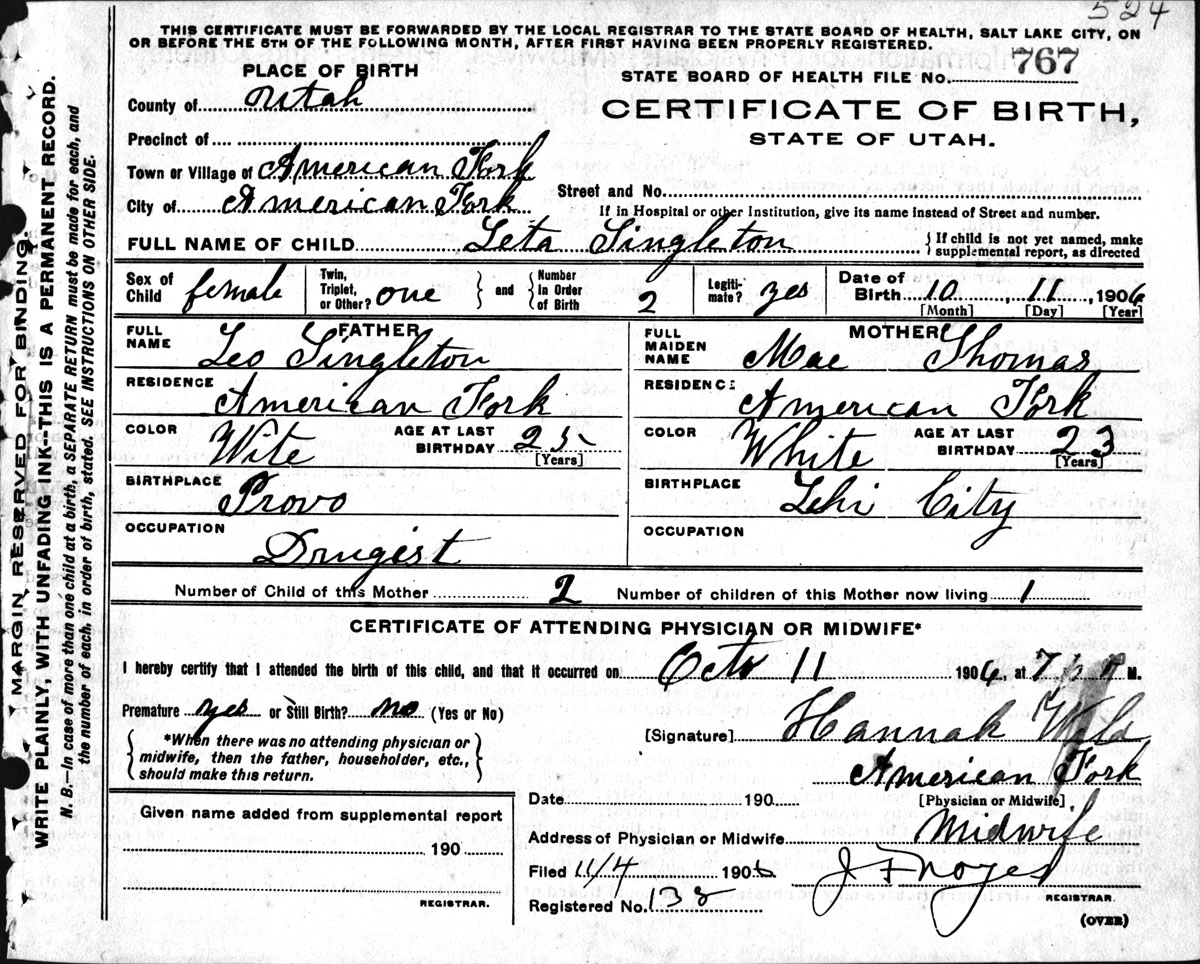 524
THIS CERTIFICATE MUST BE FORWARDED BY THE LOCAL REGISTRAR TO THE STATE BOARD OF HEALTH, SALT LAKE CITY, ON
OR BEFORE THE 5TH OF THE FOLLOWING MONTH, AFTER FIRST HAVING BEEN PROPERLY REGISTERED.
PLACE OF BIRTH
STATE BOARD OF HEALTH FILE No. 767
County of Utah
CERTIFICATE OF BIRTH,
STATE OF UTAH.
Precinct of
Town or Village of American Fork
Street and No.
City of American Fork
If in Hospital or other Institution, give its name instead of Street and number.
FULL NAME OF CHILD Leta Singleton
If child is not yet named, make
supplemental report, as directed
Sex of Child female
Twin, Triplet, or Other? one and Number in Order of Birth 2
Legitimate? yes
Date of Birth 10, 11, 1906
[Month] [Day] [Year]
FATHER
FULL NAME Leo Singleton
RESIDENCE American Fork
COLOR Wite AGE AT LAST BIRTHDAY 25
[Years]
BIRTHPLACE Provo
OCCUPATION Drugist
MOTHER
FULL MAIDEN NAME Mae Thomas
RESIDENCE American Fork
COLOR White AGE AT LAST BIRTHDAY 23
[Years]
BIRTHPLACE Lehi City
OCCUPATION
Number of Child of this Mother 2 Number of children of this Mother now living 1
CERTIFICATE OF ATTENDING PHYSICIAN OR MIDWIFE*
I hereby certify that I attended the birth of this child, and that it occurred on Octo 11 1906, at 7 M.
Premature yes or Still Birth? no (Yes or No)
*When there was no attending physician or
midwife, then the father, householder, etc.,
should make this return.
[Signature] Hannah Wild
American Fork
[Physician or Midwife]
Date 190
Address of Physician or Midwife Midwife
Filed 11/4 1906 J F Noyes
REGISTRAR.
Registered No. 138
(OVER)
Given name added from supplemental report
190
REGISTRAR.
MARGIN RESERVED FOR BINDING.
WRITE PLAINLY, WITH UNFADING INK--THIS IS A PERMANENT RECORD.
N. B.—In case of more than one child at a birth, a SEPARATE RETURN must be made for each, and
the number of each, in order of birth, stated. SEE INSTRUCTIONS ON OTHER SIDE.